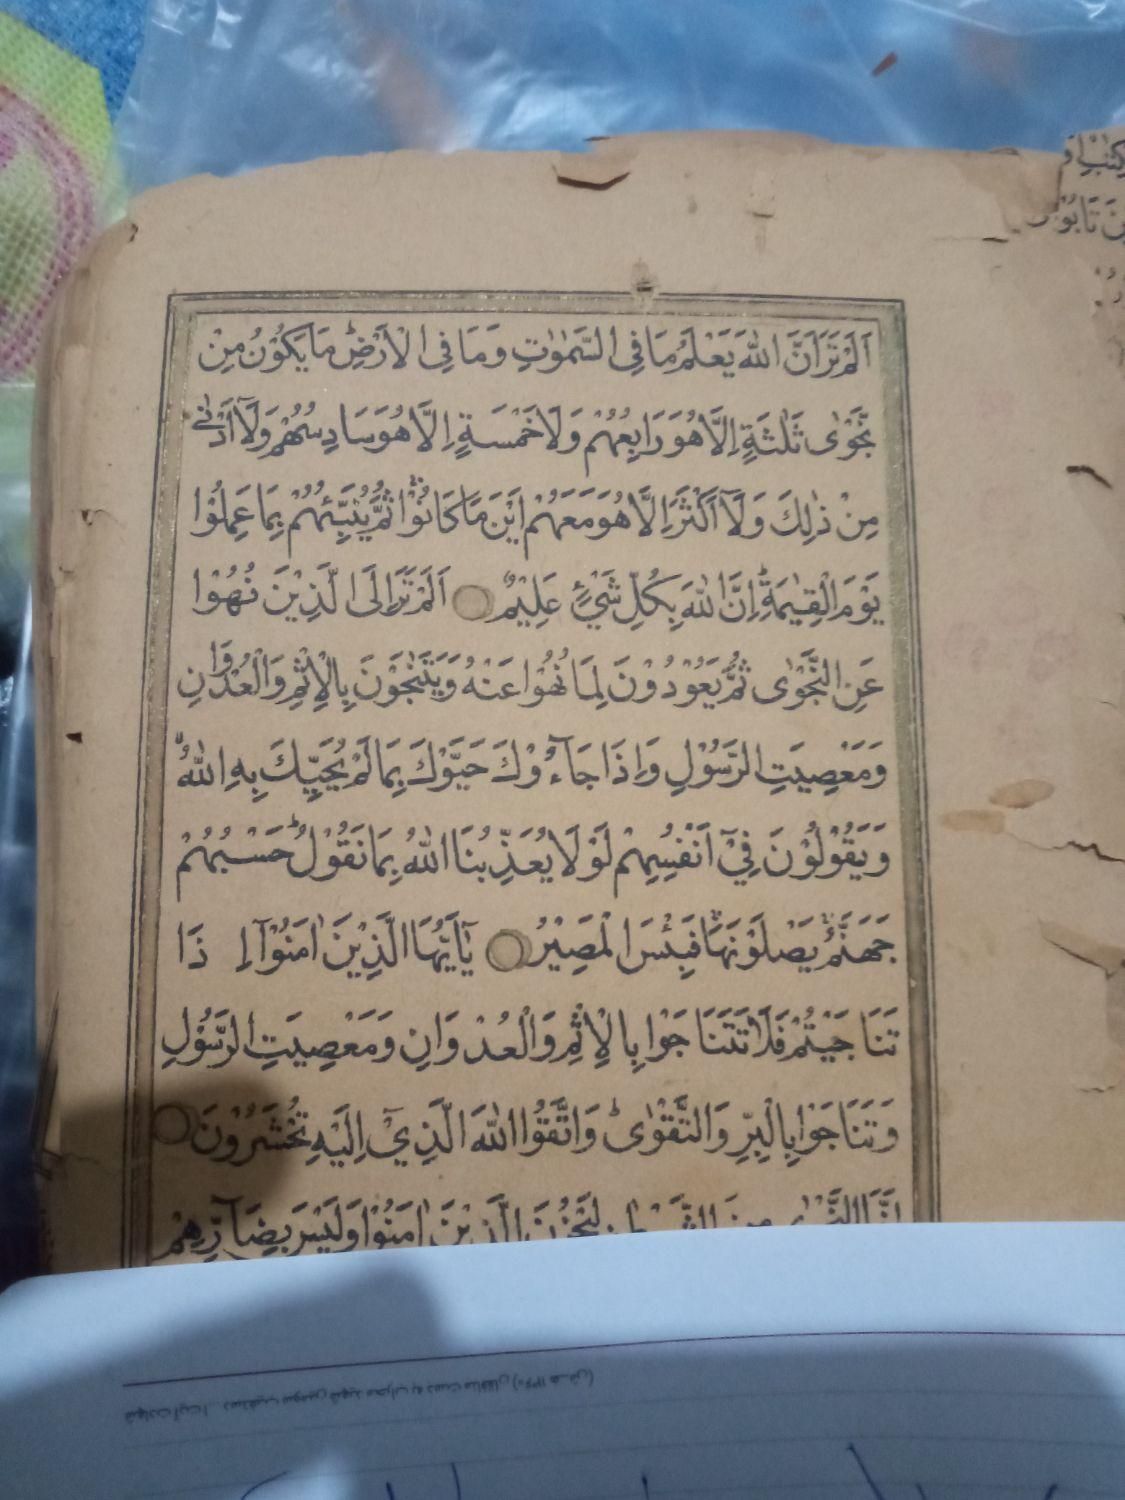 اَلَمْ تَرَ اَنَّ اللّٰهَ يَعْلَمُ مَا فِى السَّمٰوٰتِ وَمَا فِى الْاَرْضِؕ مَا يَكُوْنُ مِنْ
نَّجْوٰى ثَلٰثَةٍ اِلَّا هُوَ رَابِعُهُمْ وَلَا خَمْسَةٍ اِلَّا هُوَ سَادِسُهُمْ وَلَآ اَدْنٰى
مِنْ ذٰلِكَ وَلَآ اَكْثَرَ اِلَّا هُوَ مَعَهُمْ اَيْنَ مَا كَانُوْاۚ ثُمَّ يُنَبِّئُهُمْ بِمَا عَمِلُوْا
يَوْمَ الْقِيٰمَةِؕ اِنَّ اللّٰهَ بِكُلِّ شَیْءٍ عَلِيْمٌ اَلَمْ تَرَ اِلَى الَّذِيْنَ نُهُوْا
عَنِ النَّجْوٰى ثُمَّ يَعُوْدُوْنَ لِمَا نُهُوْا عَنْهُ وَيَتَنٰجَوْنَ بِالْاِثْمِ وَالْعُدْوَانِ
وَمَعْصِيَتِ الرَّسُوْلِ وَاِذَا جَآءُوْكَ حَيَّوْكَ بِمَا لَمْ يُحَيِّكَ بِهِ اللّٰهُۙ
وَيَقُوْلُوْنَ فِيْٓ اَنْفُسِهِمْ لَوْلَا يُعَذِّبُنَا اللّٰهُ بِمَا نَقُوْلُؕ حَسْبُهُمْ
جَهَنَّمُۚ يَصْلَوْنَهَاۚ فَبِئْسَ الْمَصِيْرُ يٰٓاَيُّهَا الَّذِيْنَ اٰمَنُوْآ اِذَا
تَنَاجَيْتُمْ فَلَا تَتَنَاجَوْا بِالْاِثْمِ وَالْعُدْوَانِ وَمَعْصِيَتِ الرَّسُوْلِ
وَتَنَاجَوْا بِالْبِرِّ وَالتَّقْوٰىؕ وَاتَّقُوا اللّٰهَ الَّذِيْٓ اِلَيْهِ تُحْشَرُوْنَ
اِنَّمَا النَّجْوٰى مِنَ الشَّيْطٰنِ لِيَحْزُنَ الَّذِيْنَ اٰمَنُوْا وَلَيْسَ بِضَآرِّهِمْ